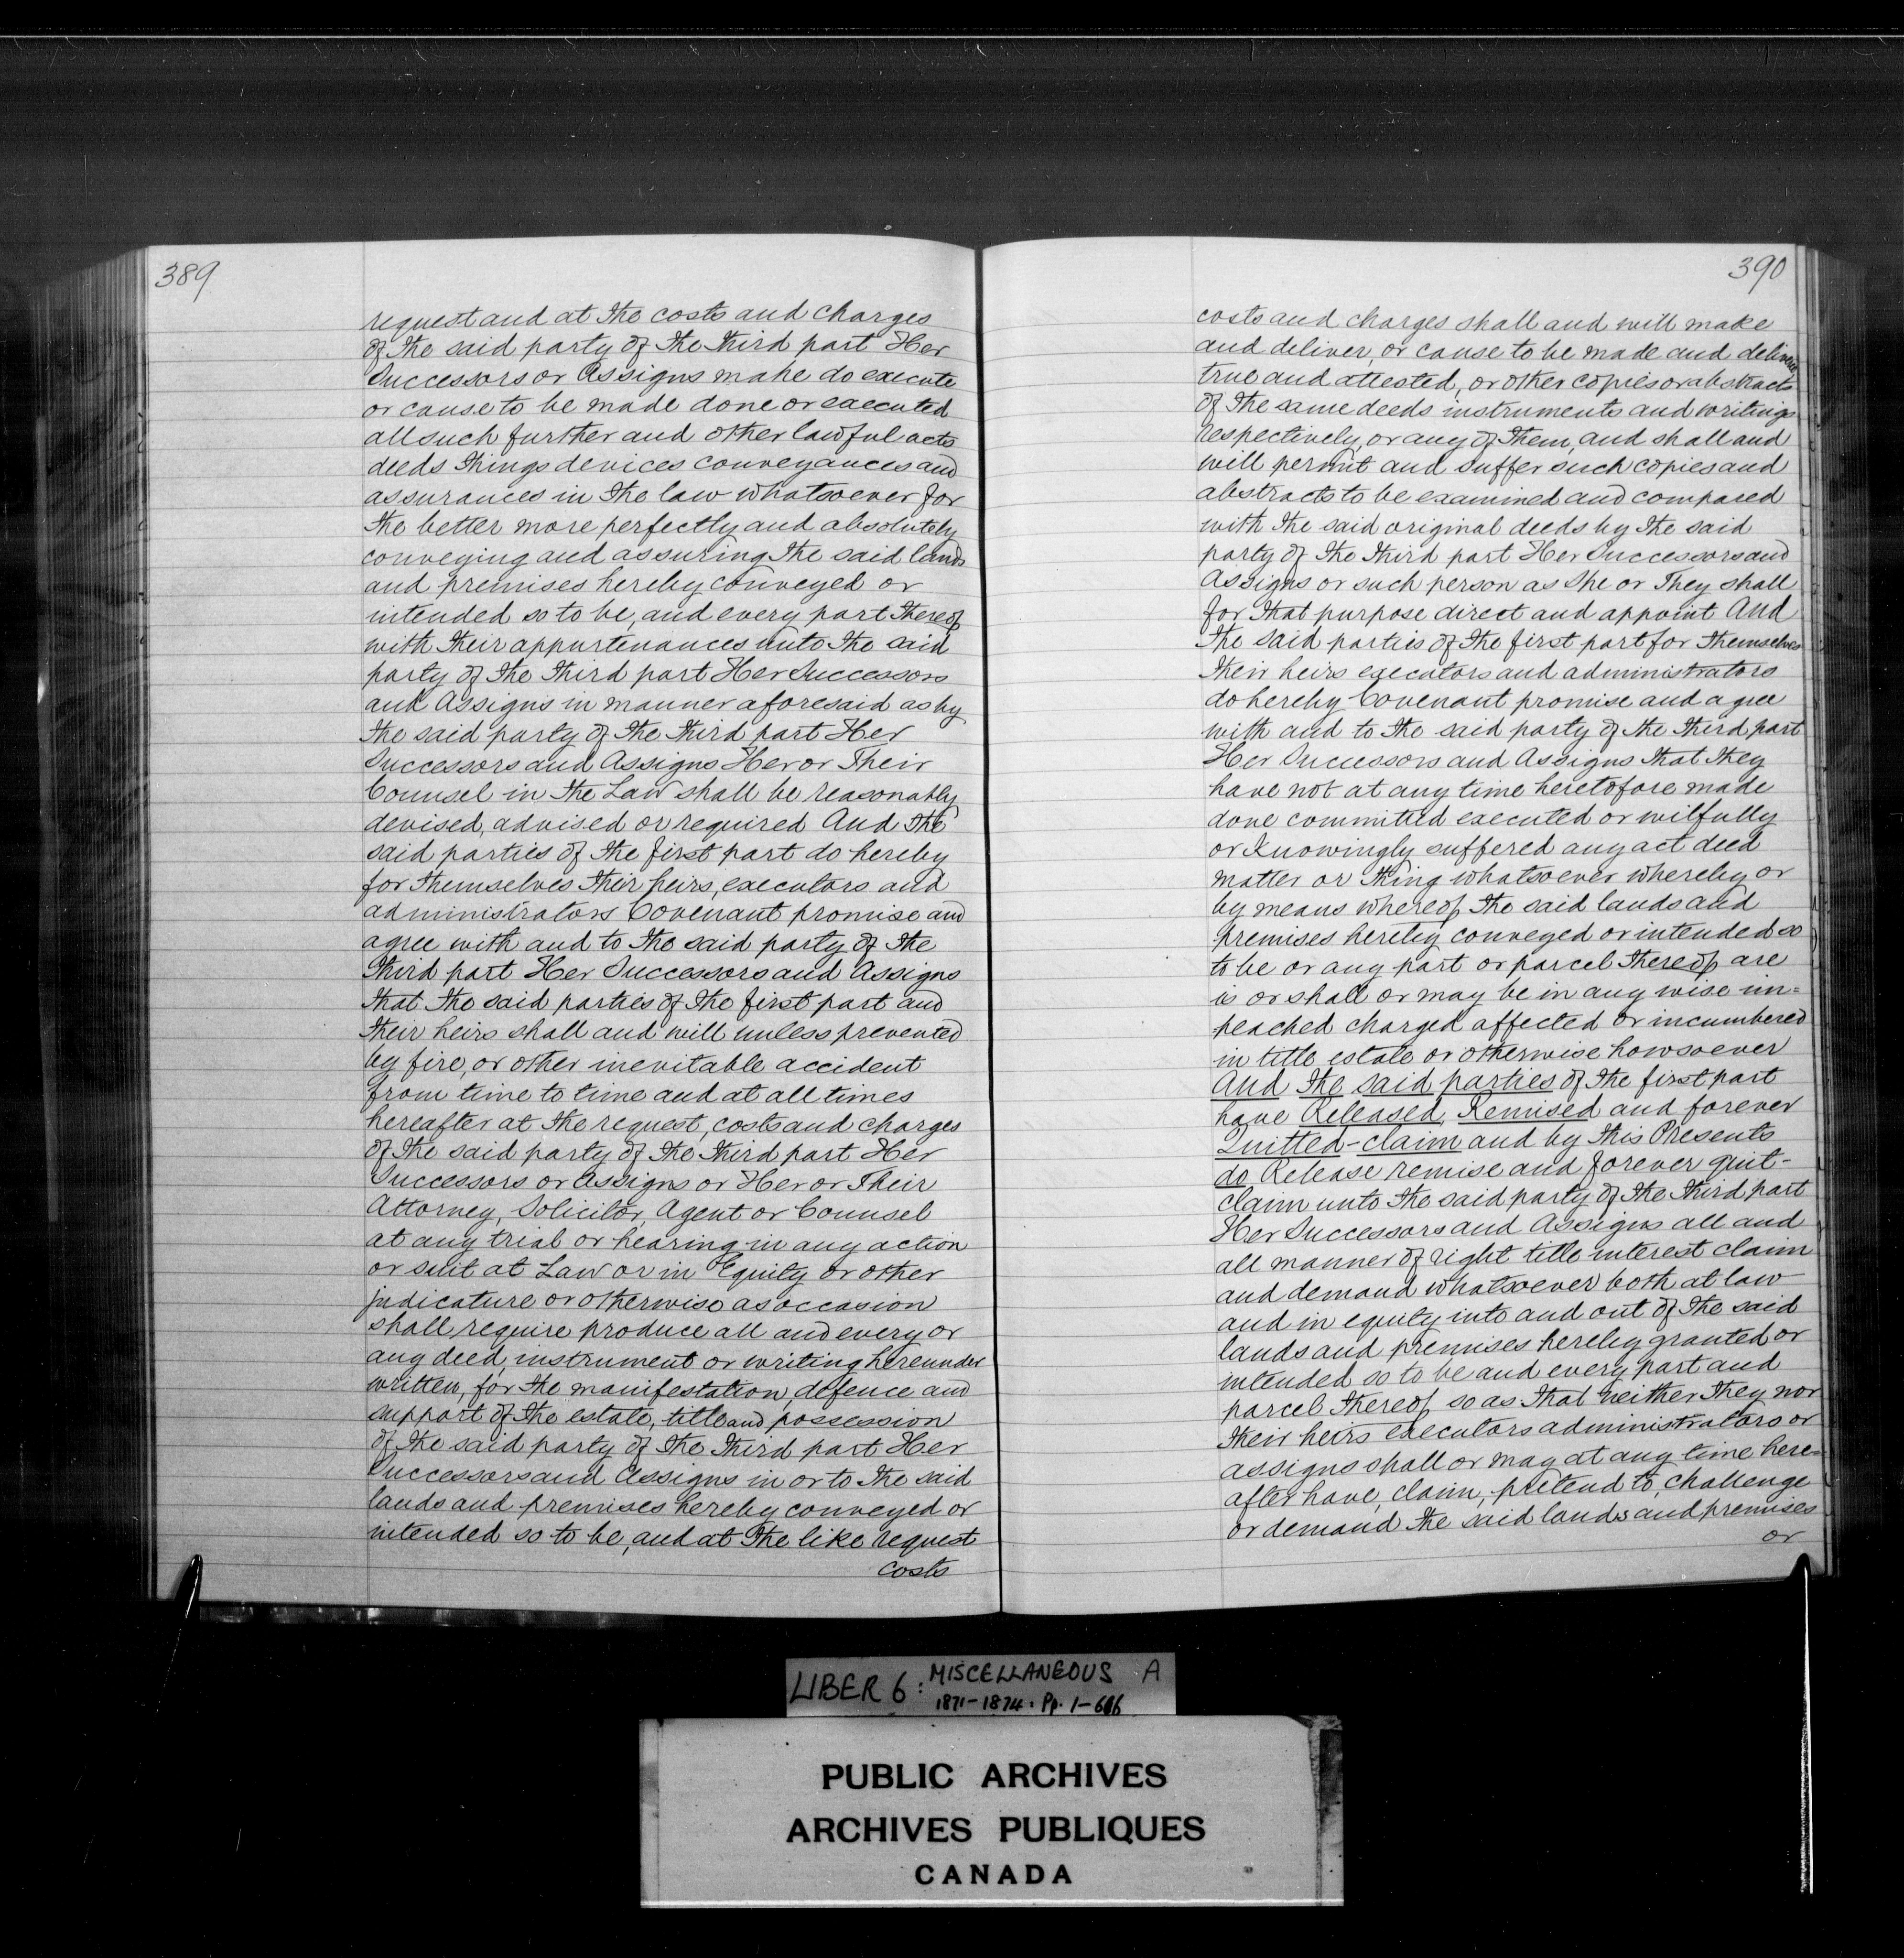 389
request and at the costs and charges
of the said party of the third part Her
Successors or Assigns make do execute
or cause to be made done or executed
all such further and other lawful acts
deeds things devices conveyances and
assurances in the law whatsoever for
the better more perfectly and absolutely
conveying and assuring the said lands
and premises hereby conveyed or
intended so to be, and every part thereof
with their appurtenances unto the said
party of the third part Her Successors
and Assigns in manner aforesaid as by
the said party of the third part Her
Successors and Assigns Her or Their
Counsel in the Law shall be reasonably
devised, advised or required And the
said parties of the first part do hereby
for themselves their heirs, executors and
administrators Covenant promise and
agree with and to the said party of the
third part Her Successors and Assigns
that the said parties of the first part and
their heirs shall and will unless prevented
by fire, or other inevitable accident
from time to time and at all times
hereafter at the request, costs and charges
of the said party of the third part Her
Successors or Assigns or Her or Their
Attorney, Solicitor, Agent or Counsel
at any trial or hearing in any action
or suit at Law or in Equity or other
judicature or otherwise as occasion
shall require produce all and every or
any deed, instrument or writing hereunder
written, for the manifestation, defence and
support of the estate, title and possession
of the said party of the third part Her
Successors and Assigns in or to the said
lands and premises hereby conveyed or
intended so to be, and at the like request
costs
390
costs and charges shall and will make
and deliver, or cause to be made and delivered
true and attested, or other copies or abstracts
of the same deeds instruments and writings
respectively, or any of them, and shall and
will permit and suffer such copies and
abstracts to be examined and compared
with the said original deeds by the said
party of the third part Her Successors and
Assigns or such person as She or They shall
for that purpose direct and appoint And
the said parties of the first part for themselves
their heirs executors and administrators
do hereby Covenant promise and agree
with and to the said party of the third part
Her Successors and Assigns that they
have not at any time heretofore made
done committed executed or wilfully
or knowingly suffered any act deed
matter or thing whatsoever whereby or
by means whereof the said lands and
premises hereby conveyed or intended so
to be or any part or parcel thereof are
is or shall or may be in any wise im=
peached charged affected or incumbered
in title estate or otherwise howsoever
And the said parties of the first part
have Released, Remised and forever
Quitted-claim and by this Presents
do Release remise and forever quit-
claim unto the said party of the third part
Her Successors and Assigns all and
all manner of right title interest claim
and demand whatsoever both at law
and in equity into and out of the said
lands and premises hereby granted or
intended so to be and every part and
parcel thereof so as that neither they nor
their heirs executors administrators or
assigns shall or may at any time here=
after have, claim, pretend to, challenge
or demand the said lands and premises
or
LIBER 6: MISCELLANEOUS A
1871-1874: Pp. 1-606
PUBLIC ARCHIVES
ARCHIVES PUBLIQUES
CANADA